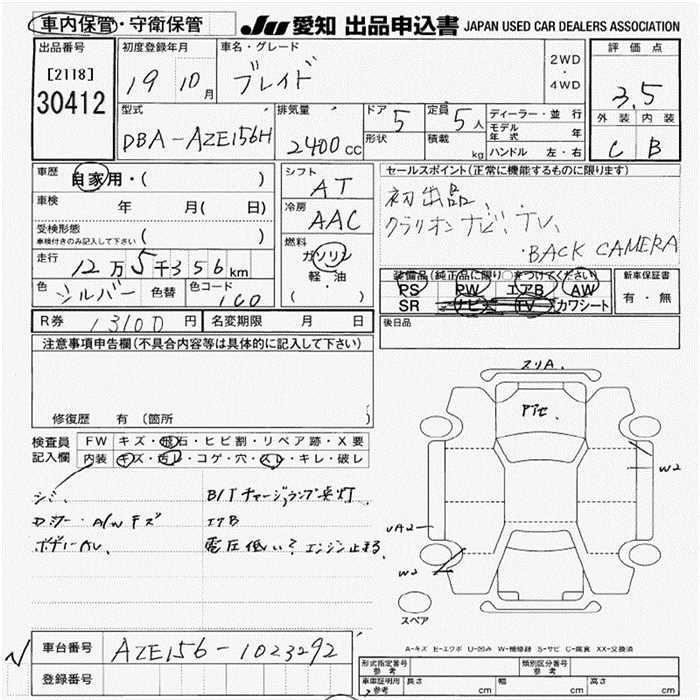 車内保管・守衛保管 JU 愛知 出品申込書 JAPAN USED CAR DEALERS ASSOCIATION
出品番号 初度登録年月 車名・グレード 2WD・4WD 評価点
[2118] 19 10月 ブレイド 3.5
30412
外装 内装
C B
型式 排気量 ドア 5 定員 5人 ディーラー・並行
DBA-AZE156H 2400cc 形状 積載 kg モデル年式 年
ハンドル 左・右
車歴 自家用・( ) シフト AT セールスポイント(正常に機能するものに限ります)
車検 年 月( 日) 冷房 AAC 初出品、
受検形態 車検付きのみ記入して下さい ( ) クラリオンナビ、TV、
・BACK CAMERA
走行 12万5千356km 燃料 ガソリン 軽・油 ( )
色 シルバー 色替 色コード 1C0
装備品(純正品に限り○をつけてください) 新車保証書
PS PW エアB AW 有・無
SR ナビ TV カワシート
R券 13100円 名変期限 月 日 後日品
注意事項申告欄(不具合内容等は具体的に記入して下さい)
修復歴 有 (箇所 )
検査員記入欄 FW キズ・飛石・ヒビ割・リペア跡・X要
内装 キズ・汚レ・コゲ・穴・スレ・キレ・破レ
シミ B/Tチャージランプ点灯
A/Wキズ エアB
電圧低い?エンジン止まる
スリA.
W2
W2
スペア
A-キズ E-エクボ U-凹み W-補修跡 S-サビ C-腐食 XX-交換済
車台番号 AZE156-1023292
登録番号
形式指定番号 参考 類別区分番号 参考
車庫証明用 参考 長さ cm 幅 cm 高さ cm